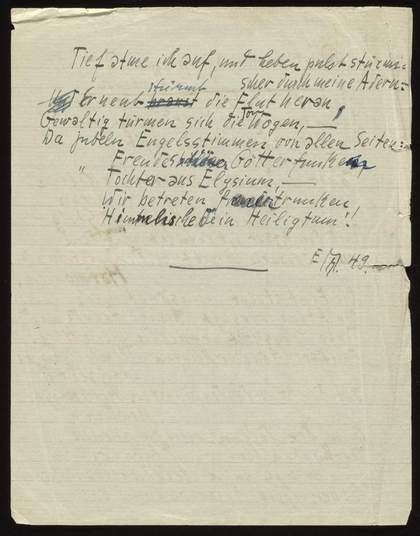 Tief atme ich auf, und Leben pulst stürmi-
scher durch meine Adern.-
stürmt
Erneut braust die Flut heran,
Gewaltig türmen sich die Wogen, —!
Da jubeln Engelsstimmen von allen Seiten:
„Freude schöner Götterfunken
Tochter aus Elysium, —
Wir betreten feuertrunken
Himmlische Dein Heiligtum"!
49.